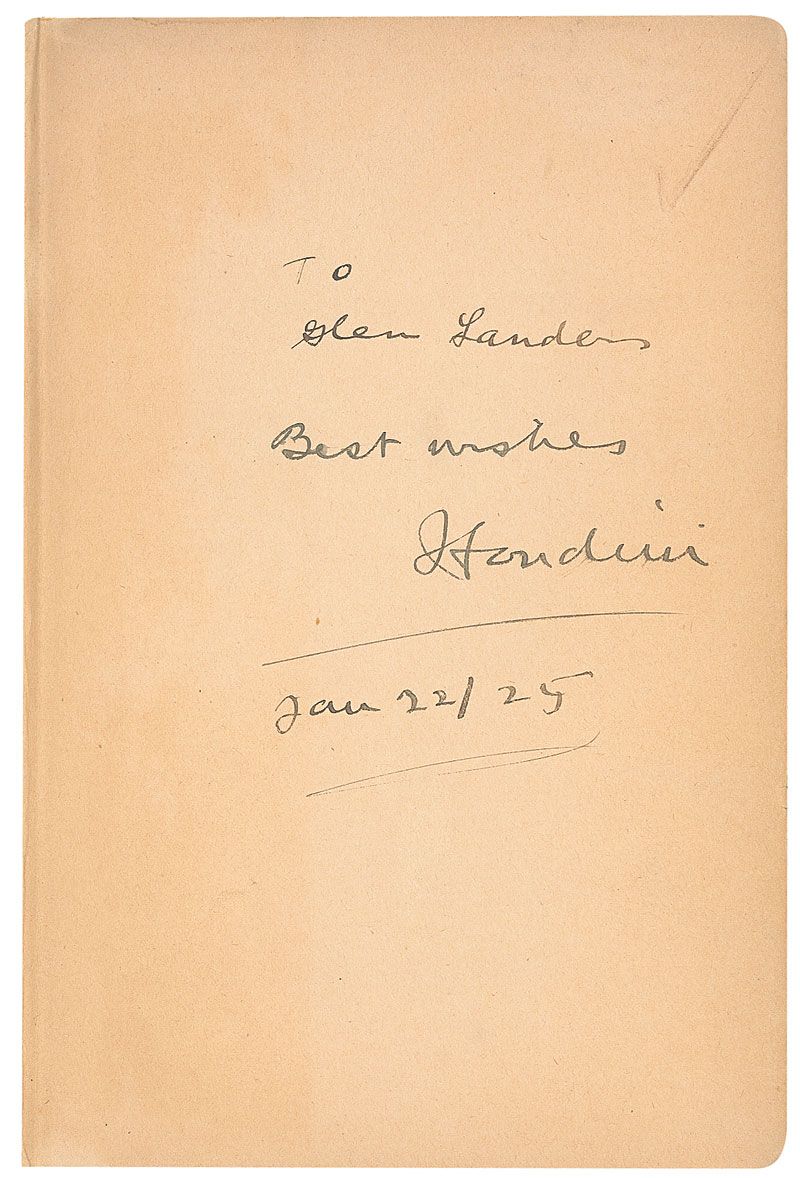 To
Glen Landers
Best wishes
Houdini
Jan 22/25